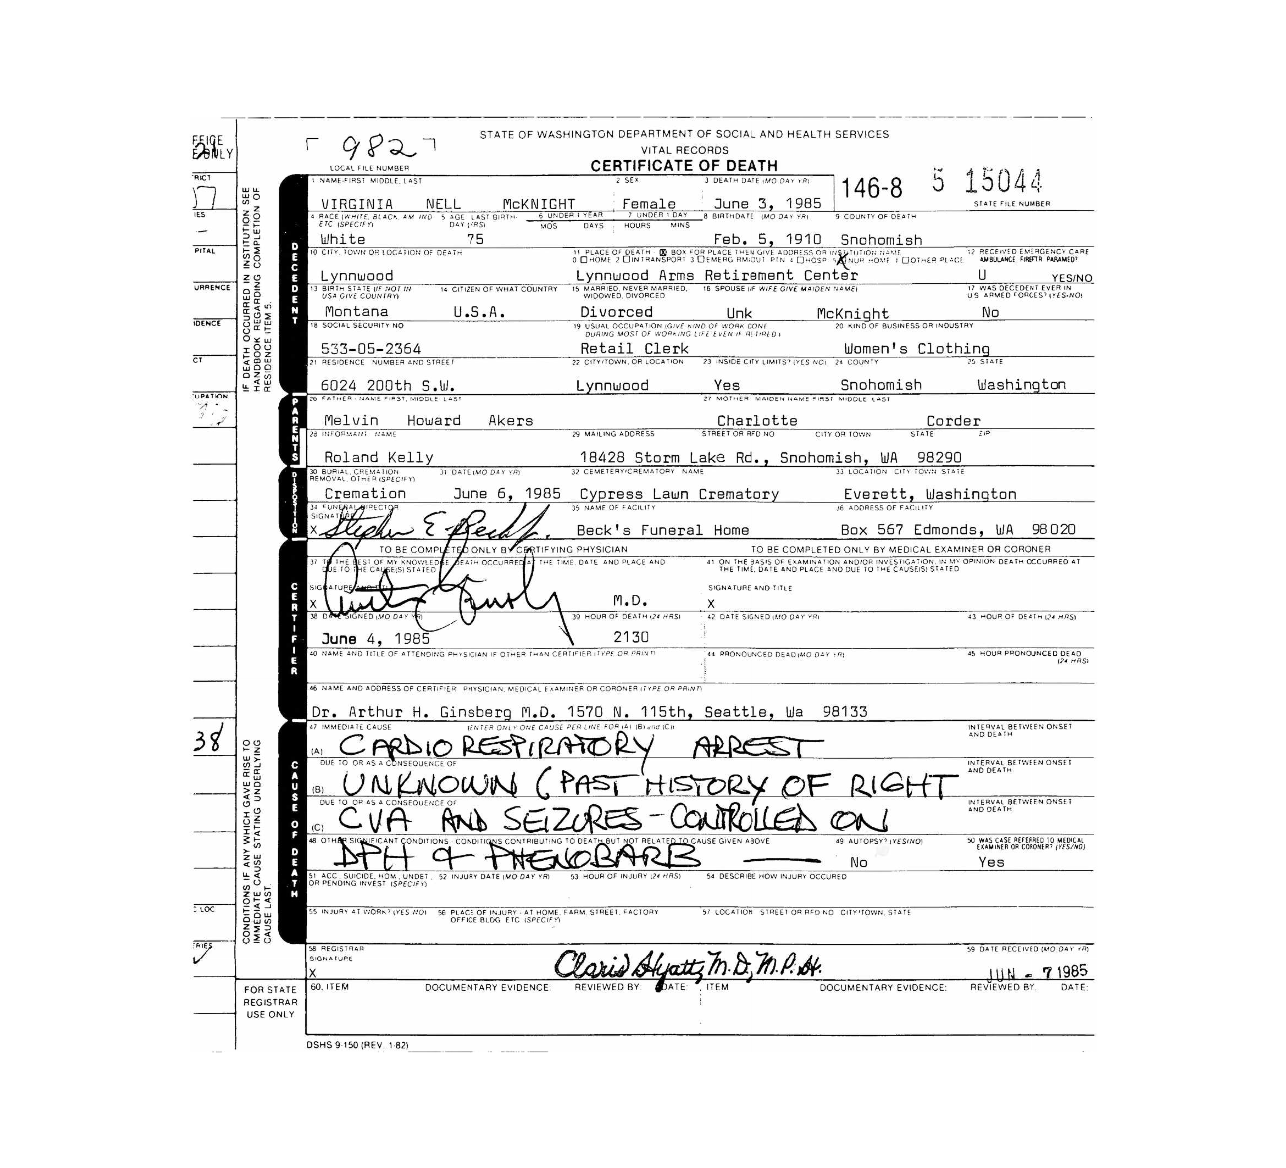 STATE OF WASHINGTON DEPARTMENT OF SOCIAL AND HEALTH SERVICES
982
VITAL RECORDS
LOCAL FILE NUMBER
CERTIFICATE OF DEATH
146-8 5 15044
STATE FILE NUMBER
1 NAME-FIRST MIDDLE, LAST 2 SEX 3 DEATH DATE (MO DAY YR)
VIRGINIA NELL McKNIGHT Female June 3, 1985
4 RACE (WHITE, BLACK, AM IND ETC (SPECIFY) 5 AGE LAST BIRTH-DAY (YRS) 6 UNDER 1 YEAR 7 UNDER 1 DAY 8 BIRTHDATE (MO DAY YR) 9 COUNTY OF DEATH
MOS DAYS HOURS MINS
White 75 Feb. 5, 1910 Snohomish
10 CITY, TOWN OR LOCATION OF DEATH 11 PLACE OF DEATH - BOX FOR PLACE THEN GIVE ADDRESS OR INSTITUTION NAME 12 RECEIVED EMERGENCY CARE
0 HOME 2 IN TRANSPORT 3 EMERG RM/OUT PTN 4 HOSP 5 NUR HOME 1 OTHER PLACE AMBULANCE FIREFTR PARAMED?
Lynnwood Lynnwood Arms Retirament Center U YES/NO
13 BIRTH STATE (IF NOT IN USA GIVE COUNTRY) 14 CITIZEN OF WHAT COUNTRY 15 MARRIED, NEVER MARRIED, WIDOWED, DIVORCED 16 SPOUSE (IF WIFE GIVE MAIDEN NAME) 17 WAS DECEDENT EVER IN US ARMED FORCES? (YES/NO)
Montana U.S.A. Divorced Unk McKnight No
18 SOCIAL SECURITY NO 19 USUAL OCCUPATION (GIVE KIND OF WORK DONE DURING MOST OF WORKING LIFE EVEN IF RETIRED) 20 KIND OF BUSINESS OR INDUSTRY
533-05-2364 Retail Clerk Women's Clothing
21 RESIDENCE NUMBER AND STREET 22 CITY/TOWN, OR LOCATION 23 INSIDE CITY LIMITS? (YES NO) 24 COUNTY 25 STATE
6024 200th S.W. Lynnwood Yes Snohomish Washington
26 FATHER - NAME FIRST, MIDDLE LAST 27 MOTHER MAIDEN NAME FIRST MIDDLE LAST
Melvin Howard Akers Charlotte Corder
28 INFORMANT NAME 29 MAILING ADDRESS STREET OR RFD NO CITY OR TOWN STATE ZIP
Roland Kelly 18428 Storm Lake Rd., Snohomish, WA 98290
30 BURIAL, CREMATION REMOVAL, OTHER (SPECIFY) 31 DATE (MO DAY YR) 32 CEMETERY/CREMATORY NAME 33 LOCATION CITY TOWN STATE
Cremation June 6, 1985 Cypress Lawn Crematory Everett, Washington
34 FUNERAL DIRECTOR SIGNATURE 35 NAME OF FACILITY 36 ADDRESS OF FACILITY
X Stephen E. Beck Beck's Funeral Home Box 567 Edmonds, WA 98020
TO BE COMPLETED ONLY BY CERTIFYING PHYSICIAN TO BE COMPLETED ONLY BY MEDICAL EXAMINER OR CORONER
37 TO THE BEST OF MY KNOWLEDGE DEATH OCCURRED AT THE TIME, DATE AND PLACE AND DUE TO THE CAUSE(S) STATED 41 ON THE BASIS OF EXAMINATION AND/OR INVESTIGATION, IN MY OPINION DEATH OCCURRED AT THE TIME, DATE AND PLACE AND DUE TO THE CAUSE(S) STATED
SIGNATURE AND TITLE SIGNATURE AND TITLE
X M.D. X
38 DATE SIGNED (MO DAY YR) 39 HOUR OF DEATH (24 HRS) 42 DATE SIGNED (MO DAY YR) 43 HOUR OF DEATH (24 HRS)
June 4, 1985 2130
40 NAME AND TITLE OF ATTENDING PHYSICIAN IF OTHER THAN CERTIFIER (TYPE OR PRINT) 44 PRONOUNCED DEAD (MO DAY YR) 45 HOUR PRONOUNCED DEAD (24 HRS)
46 NAME AND ADDRESS OF CERTIFIER PHYSICIAN, MEDICAL EXAMINER OR CORONER (TYPE OR PRINT)
Dr. Arthur H. Ginsberg M.D. 1570 N. 115th, Seattle, Wa 98133
47 IMMEDIATE CAUSE (ENTER ONLY ONE CAUSE PER LINE FOR (A) (B) and (C)) INTERVAL BETWEEN ONSET AND DEATH
(A) CARDIO RESPIRATORY ARREST
DUE TO OR AS A CONSEQUENCE OF INTERVAL BETWEEN ONSET AND DEATH
(B) UNKNOWN (PAST HISTORY OF RIGHT
DUE TO OR AS A CONSEQUENCE OF INTERVAL BETWEEN ONSET AND DEATH
(C) CVA AND SEIZURES - CONTROLLED ON
48 OTHER SIGNIFICANT CONDITIONS - CONDITIONS CONTRIBUTING TO DEATH BUT NOT RELATED TO CAUSE GIVEN ABOVE 49 AUTOPSY? (YES/NO) 50 WAS CASE REFERRED TO MEDICAL EXAMINER OR CORONER? (YES/NO)
DPH & PHENOBARB No Yes
51 ACC, SUICIDE, HOM, UNDET, OR PENDING INVEST (SPECIFY) 52 INJURY DATE (MO DAY YR) 53 HOUR OF INJURY (24 HRS) 54 DESCRIBE HOW INJURY OCCURED
55 INJURY AT WORK? (YES NO) 56 PLACE OF INJURY - AT HOME, FARM, STREET, FACTORY OFFICE BLDG ETC (SPECIFY) 57 LOCATION STREET OR RFD NO CITY/TOWN, STATE
58 REGISTRAR SIGNATURE 59 DATE RECEIVED (MO DAY YR)
X Claris Hyatt, M.D., M.P.H. JUN - 7 1985
60. ITEM DOCUMENTARY EVIDENCE REVIEWED BY: DATE: ITEM DOCUMENTARY EVIDENCE: REVIEWED BY: DATE:
DSHS 9-150 (REV. 1-82)
DECEDENT
PARENTS
DISPOSITION
CERTIFIER
CAUSE OF DEATH
IF DEATH OCCURRED IN INSTITUTION SEE HANDBOOK REGARDING COMPLETION OF RESIDENCE ITEMS.
CONDITIONS IF ANY WHICH GAVE RISE TO IMMEDIATE CAUSE STATING UNDERLYING CAUSE LAST.
FOR STATE REGISTRAR USE ONLY
38